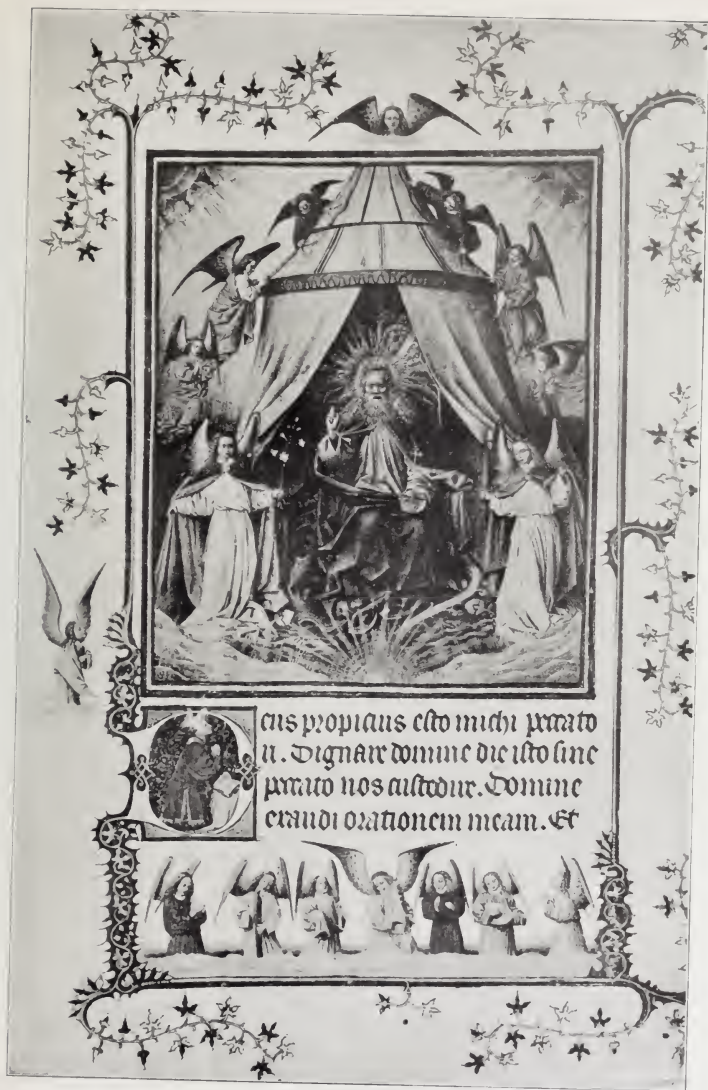 Deus propicius esto michi peccato
ri. Dignare domine die isto sine
peccato nos custodire. Domine
exaudi orationem meam. Et